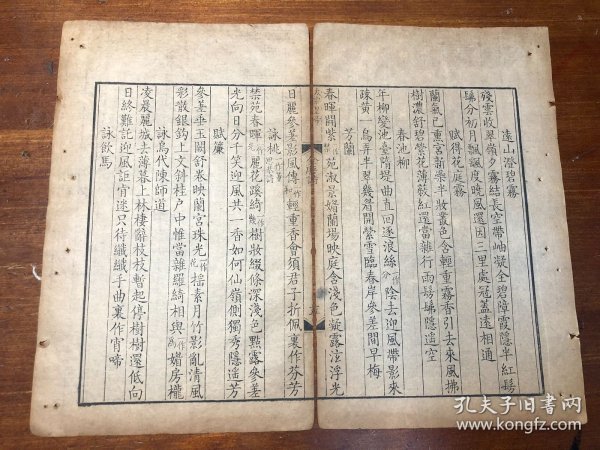 遠山澄碧霧
殘雲收翠嶺夕霧結長空帶岫凝全碧障霞隱半紅髣
髴分初月飄颻度曉風還因三里處冠蓋遠相通
賦得花庭霧
蘭氣已熏宮新蕊半妝叢色含輕重霧香引去來風拂
樹濃舒碧縈花薄蔽紅還當雜行雨髣髴隱遙空
春池柳
年柳變池臺隋堤曲直回逐浪絲陰去迎風帶影來
疎黃一鳥弄半翠幾眉開縈雪臨春岸參差間早梅
芳蘭
春暉開紫苑淑景媚蘭場映庭含淺色凝露泫浮光
日麗參差影風傳輕重香會須君子折佩裏作芬芳
詠桃
禁苑春暉麗花蹊綺樹妝綴條深淺色點露參差
光向日分千笑迎風共一香如何仙嶺側獨秀隱遙芳
賦簾
參差垂玉闕舒卷映蘭宮珠光搖素月竹影亂清風
彩散銀鉤上文斜桂戶中惟當雜羅綺相與媚房櫳
詠烏代陳師道
凌晨麗城去薄暮上林棲辭枝枝暫起停樹樹還低向
日終難託迎風詎肯迷只待纖纖手曲裏作宵啼
詠飲馬
孔夫子旧书网
www.kongfz.com